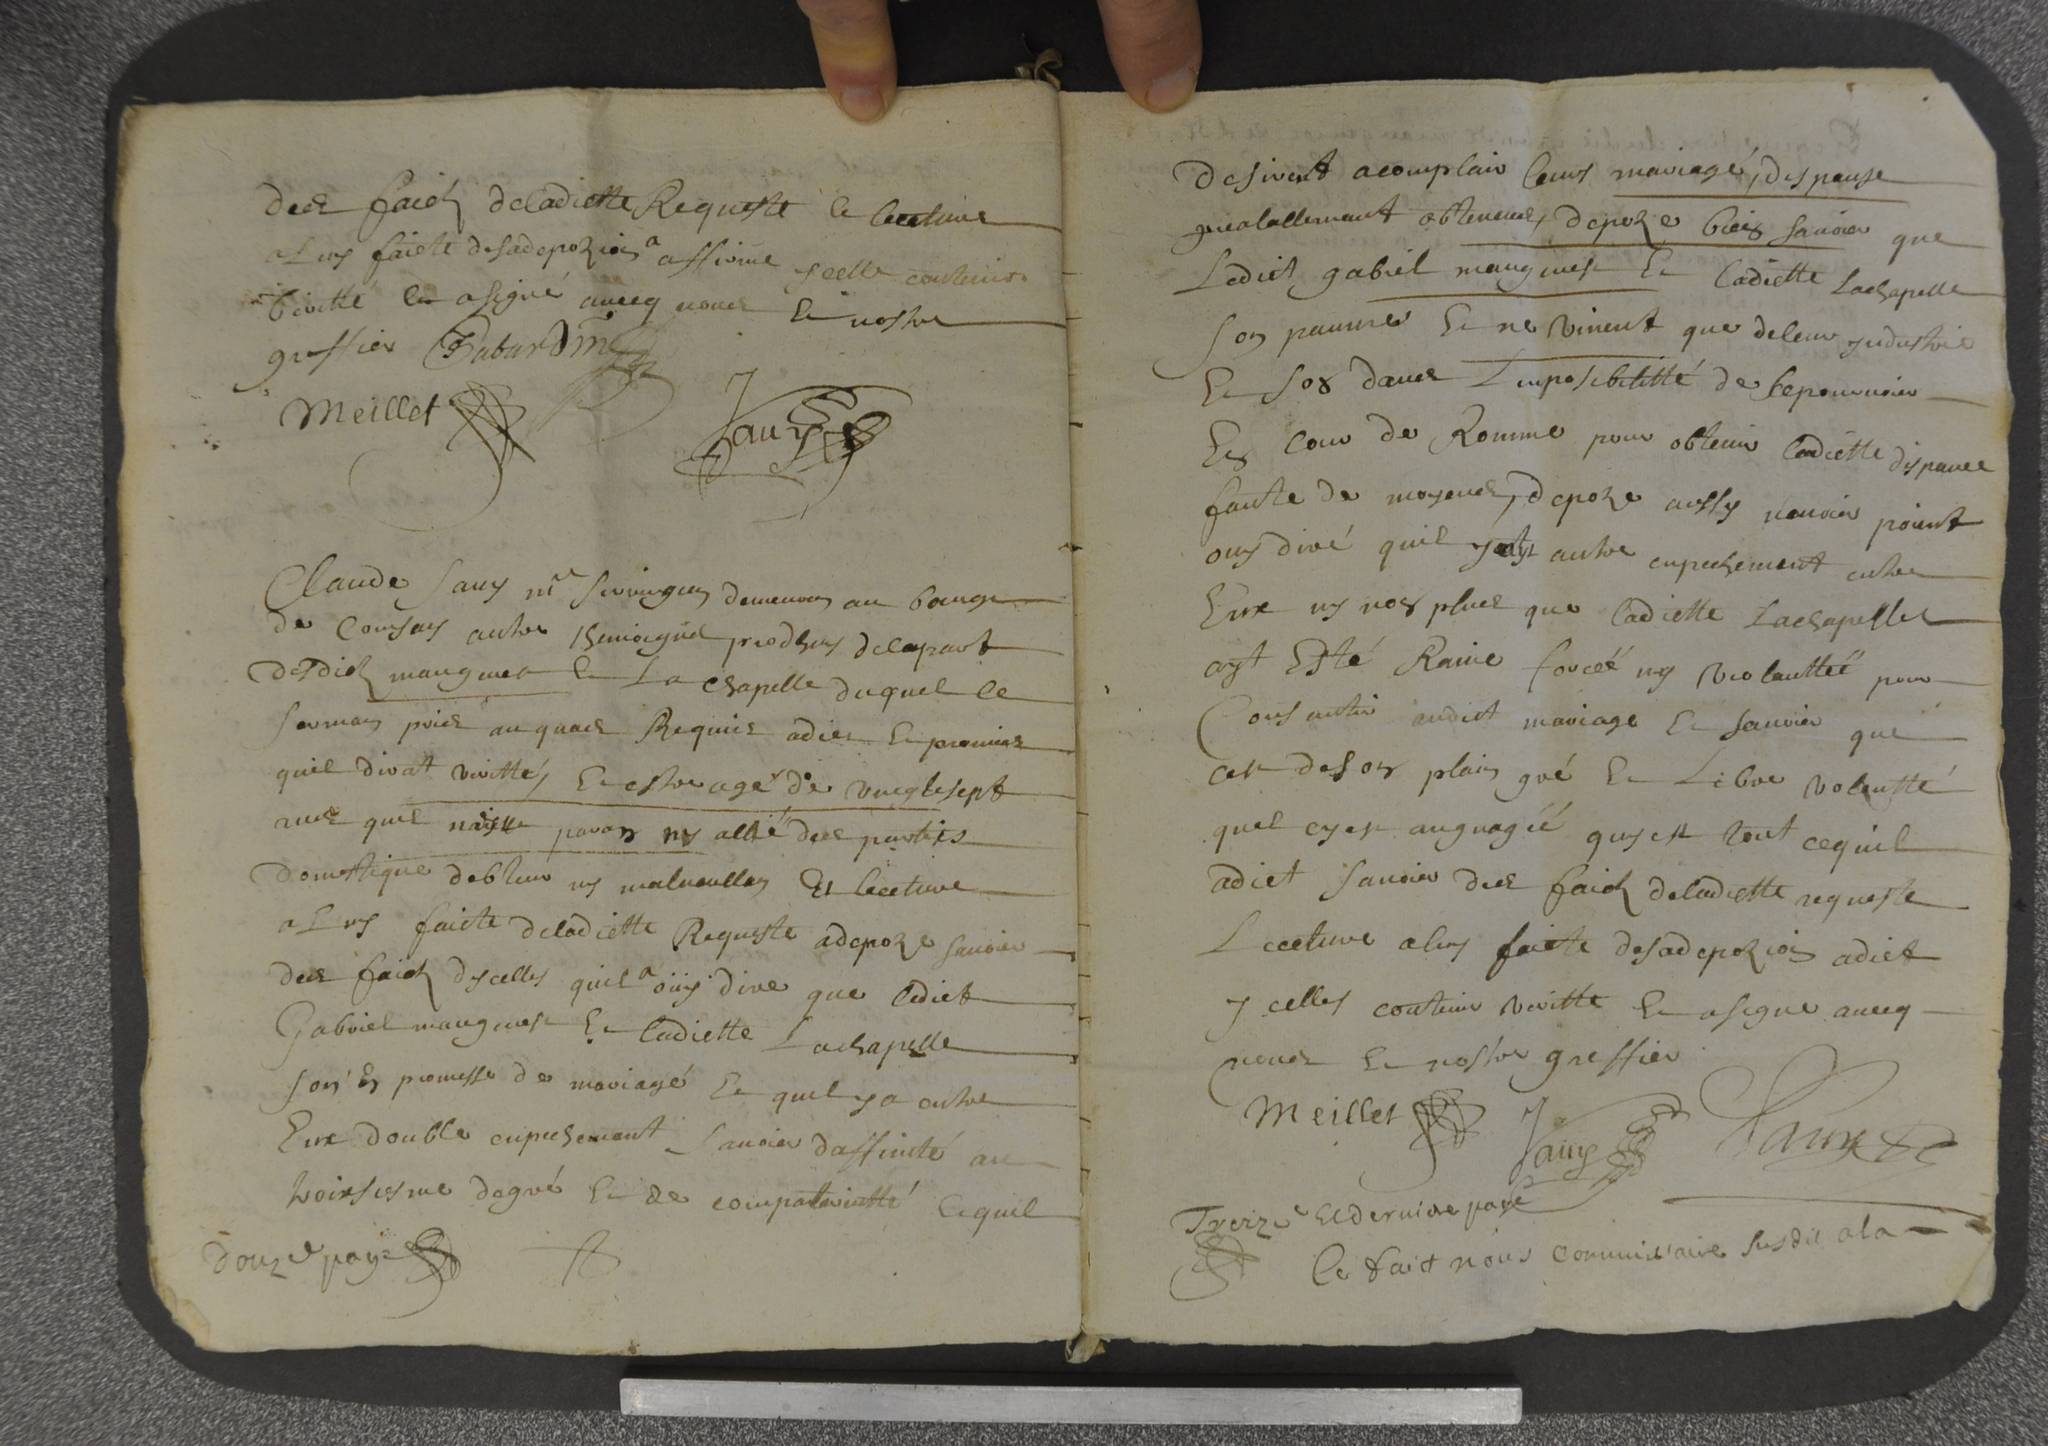 des faicts de ladicte Requeste et lecture
a luy faicte de sa depozion a affirmé ycelle contenir
veritté et a signé avecq nous et nostre
greffier Tabardin
Meillet Jauy
Claude Jauy me sirurgien demeuran au bourg
de Coursay autre thmoigne prodhuy de la part
desdicts maugnest et La chapelle duquel le
serman pris au quas Requis a dies et promis
quil dirat veritté, et estre agé de vingt sept
ans quil n'aist paran ny allié des parties
domestique debteur ny malveullan Et lecture
a luy faicte de ladictte Requeste a depoze savoir
des faicts dycelles quil a ouy dire que ledict
Gabriel maugnest et ladictte Lachapelle
son En promesse de mariagé et quil y a entre
Eux double enpechement savoir daffinité au
troixsiesme degré et de conpaternitté Et quil
douze page
desirent acomplair leurs mariagé, dispanse
prealallemant obtenues, depoze bien savoir que
Ledict gabriel maugnest et ladictte Lachapelle
son pauvres et ne vivent que de leur yndustrie
et son dans Linposibilitté de se pourvoir
En cour de Romme pour obtenir ladictte dispance
faute de moyens, depoze aussy navoir point
ouy diré quil y ayt autre enpechement entre
Eux ny non plus que ladictte Lachapelles
ayt Esté Ravie forcéé ny violanttéé pour
Consantir audict mariage et savoir que
cest de son plain gré et Libre volontté
quel cy est angnagéé quy est tout ce quil
a dict savoir des faicts de ladictte requeste
Lecture a luy faicte de sa depozion a dict
ycelles contenir veritté et a signé avecq
nous et nostre greffier
Meillet Jauy
Treize et derniere page
Ce fait nous commissaire susdit a la